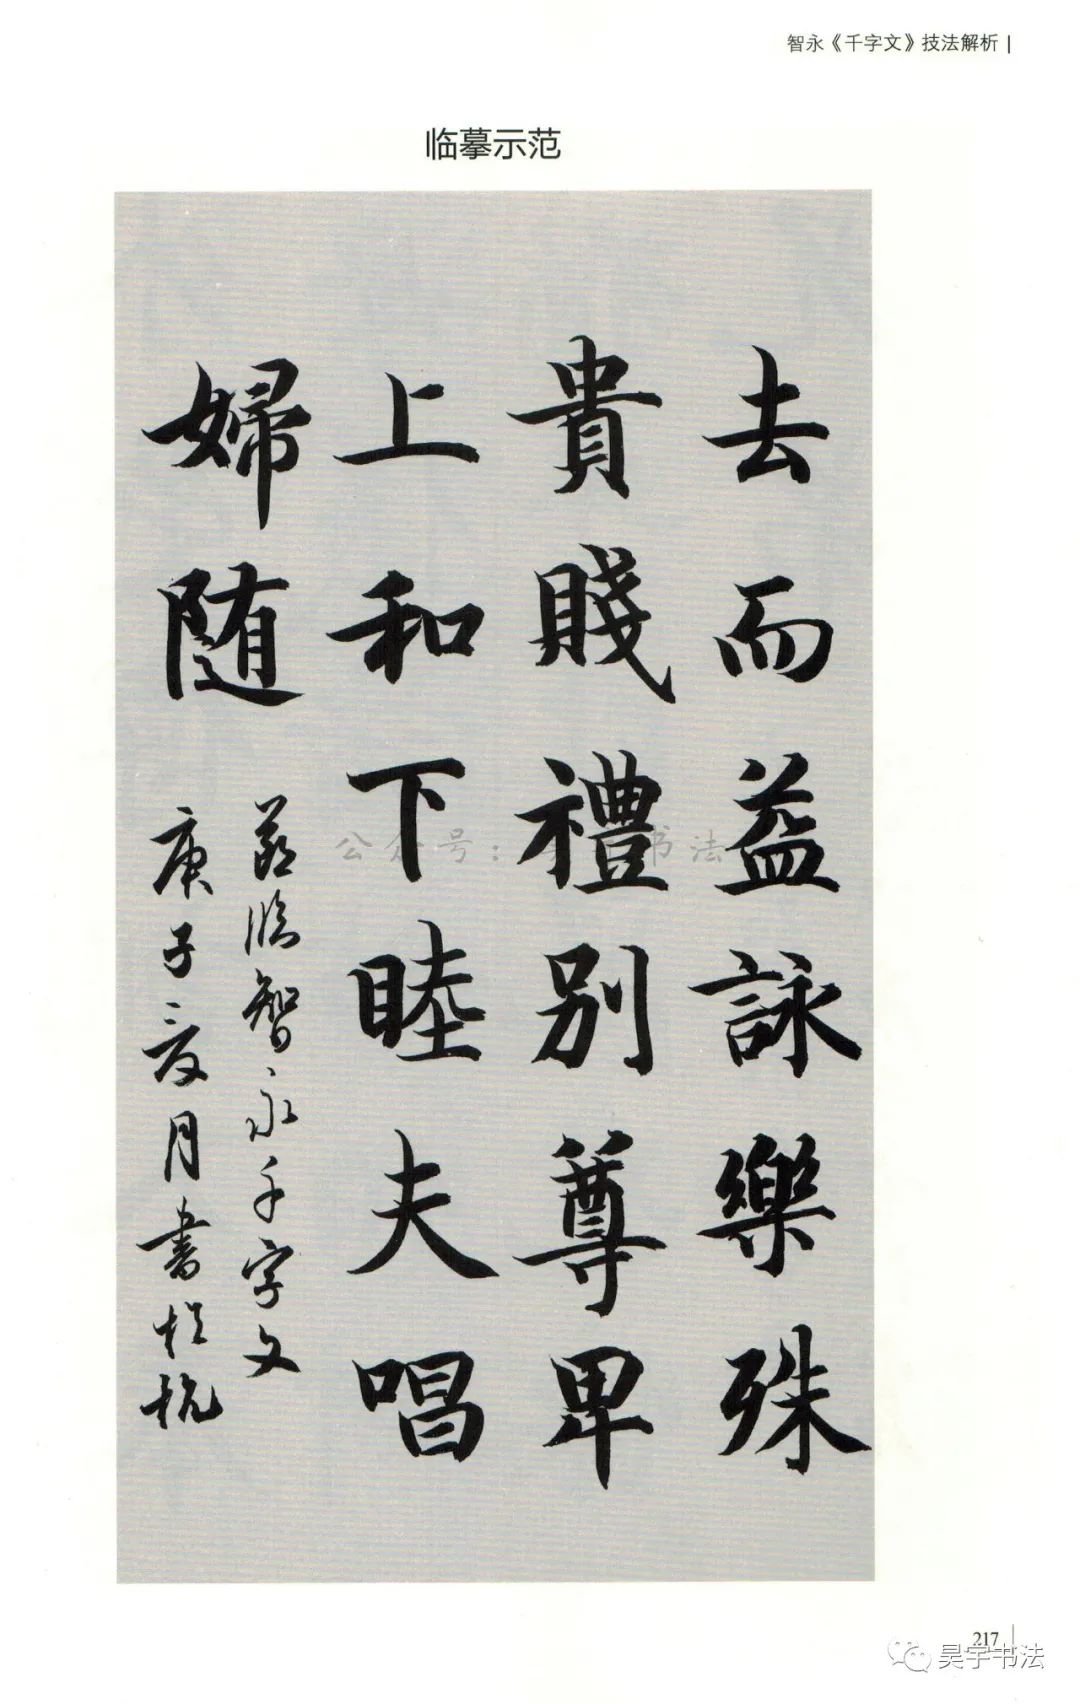 智永《千字文》技法解析
临摹示范
去而益詠樂殊
貴賤禮別尊卑
上和下睦夫唱
婦随
臨智永千字文
庚子夏月書於杭
公众号：书法
217
昊宇书法